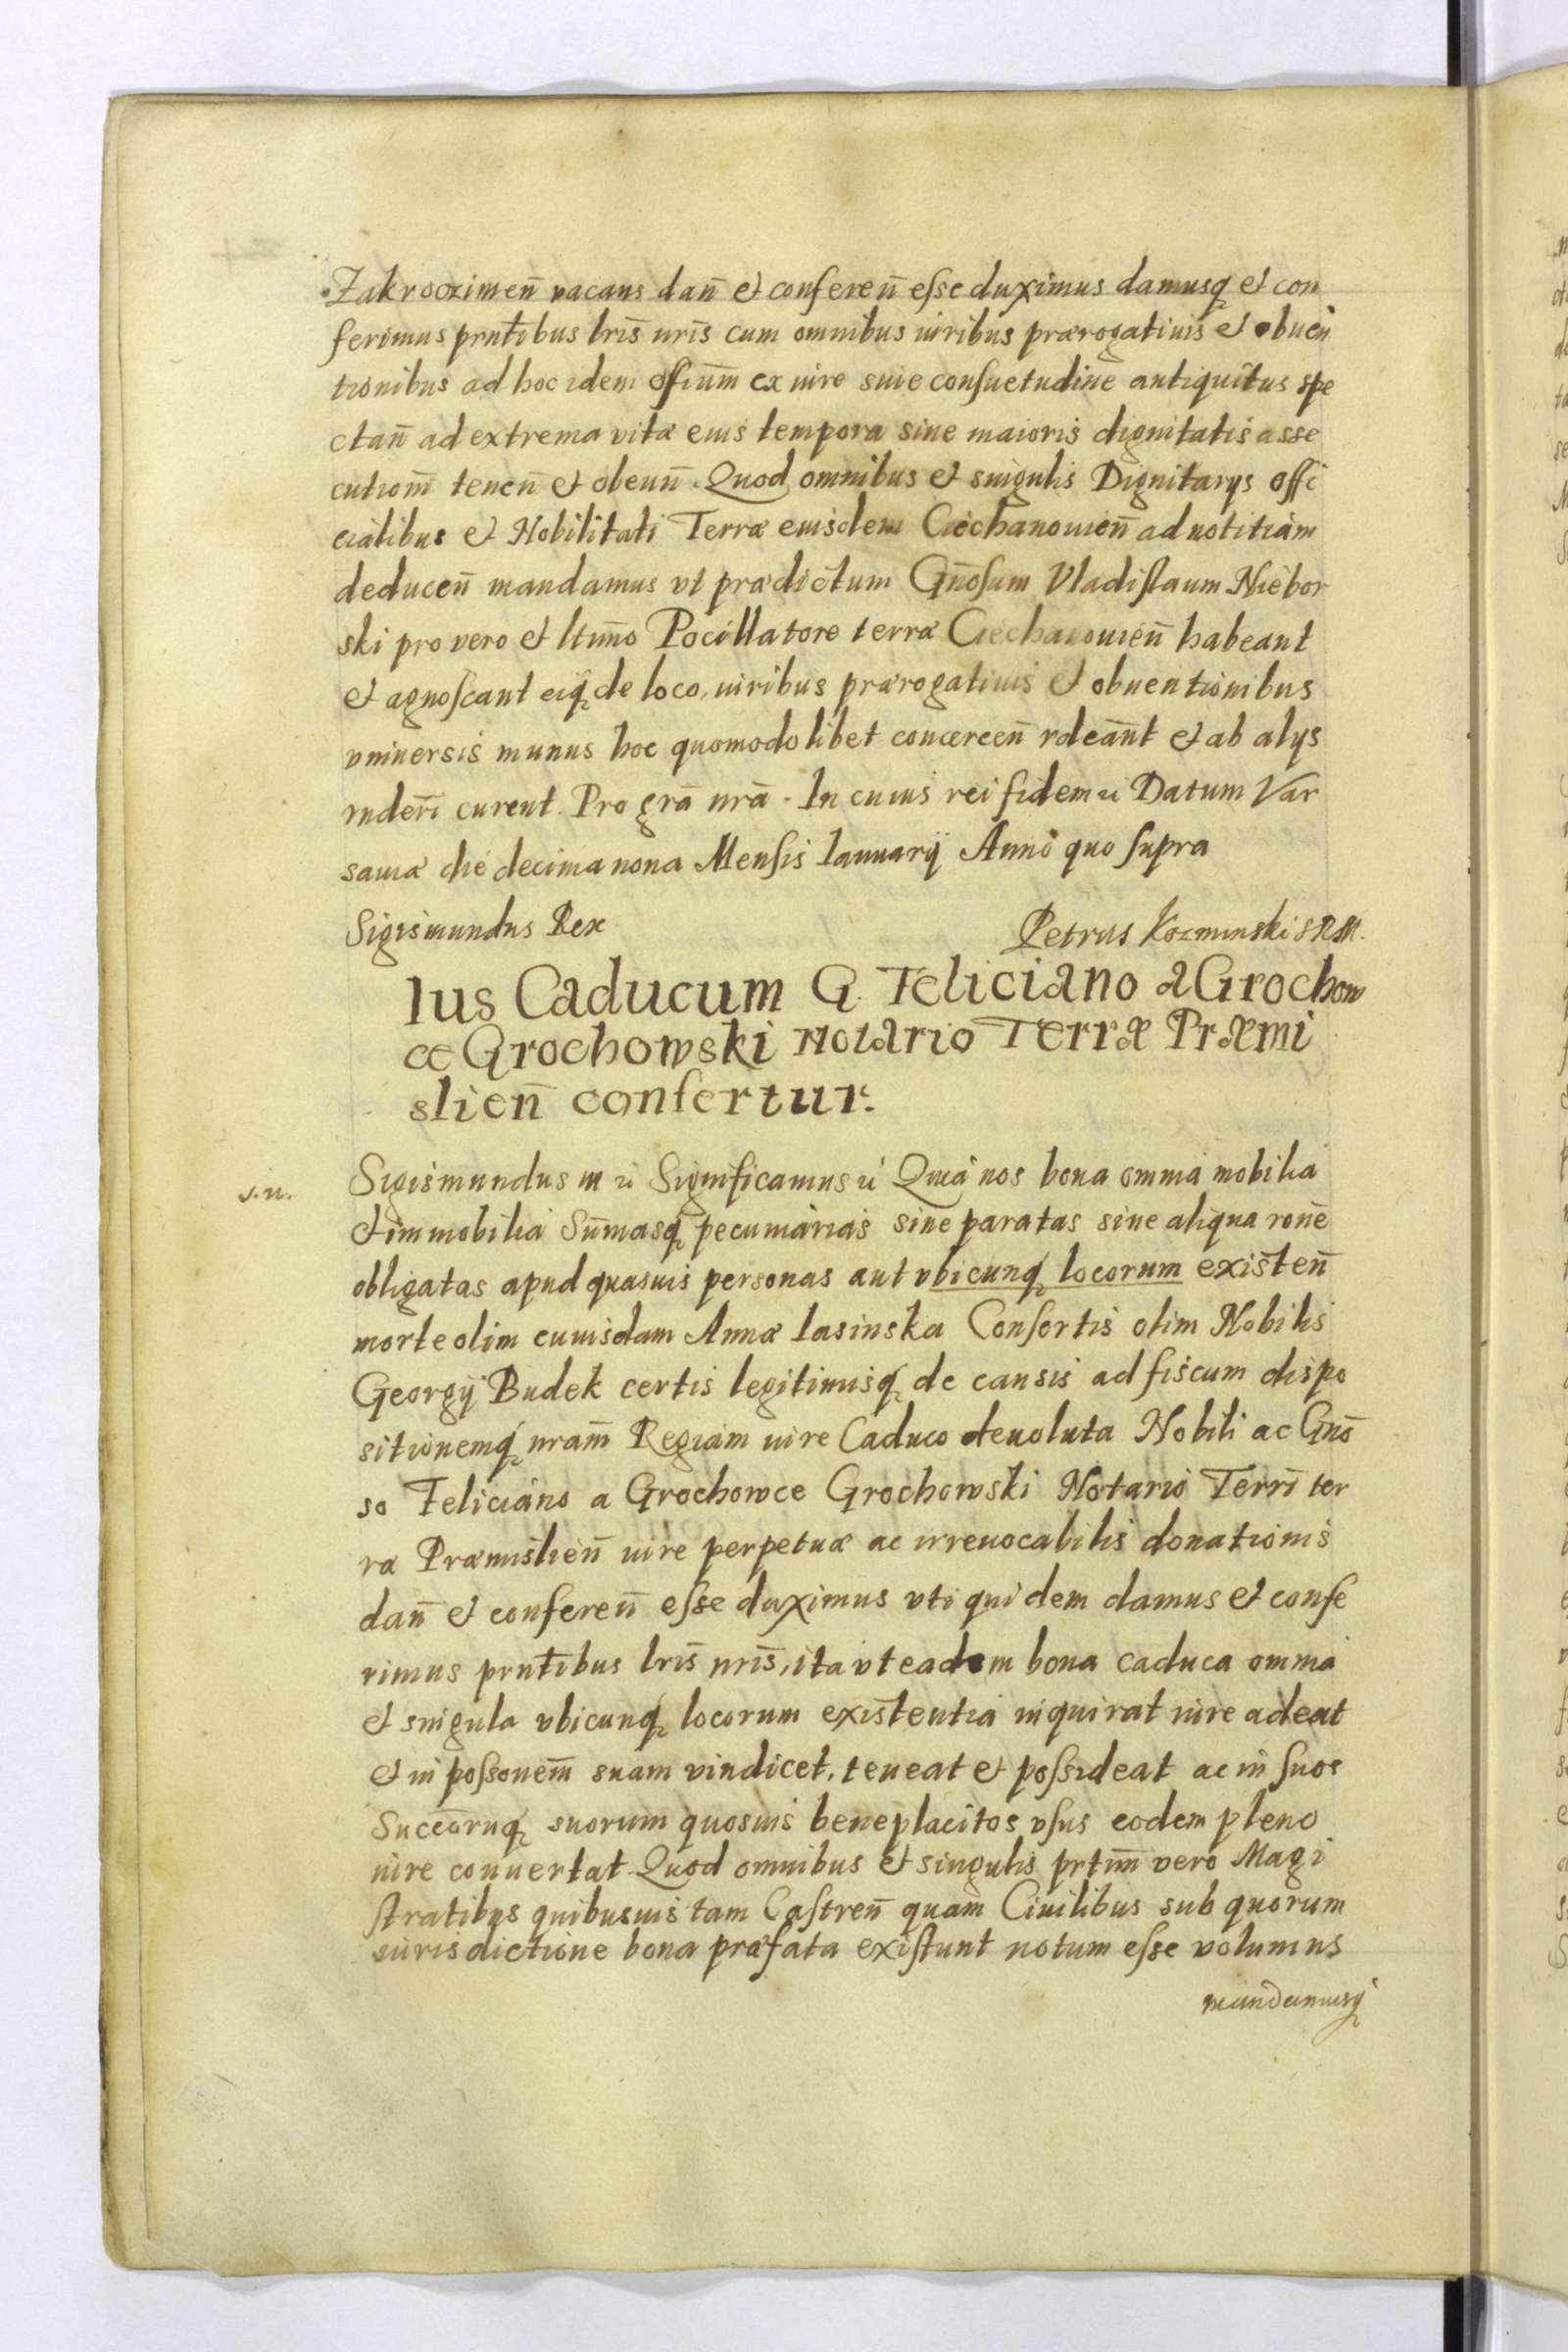 Zakroczimen̄ vacans dan̄ et conferen̄ eſse duximus damusq́ et con
ferimus prntibus lris nris cum omnibus iuribus prærogatiuis et obuen
tionibus ad hoc idem offium̄ ex iure siue conſuetudine antiquitus spe
ctan̄ ad extrema vitæ eius tempora siue maioris dignitatis asse
cutiom̄ tenen̄ et obeun̄. Quod omnibus et singulis Dignitarijs offi
cialibus et Nobilitati Terræ eiusdem Ciechanouien̄ ad notitiam
deducen̄ mandamus vt prædictum Gn̄oſum Vladiſlaum Niebor
ski pro vero et ltimo Pocillatore terræ Ciechanouien̄ habeant
et agnoſcant eiq́ de loco, iuribus prærogatiuis et obuentionibus
vniuersis munus hoc quomodolibet concercen̄ rdeānt et ab alijs
rnderī curent. Pro grā nrā. In cuius rei fidem ꝛc Datum Var
sauiæ die decima nona Menſis Ianuarij Anno quo ſupra
Sigismundus Rex
Petrus Kozminski SRM.
Ius Caducum G. Feliciano a Grochow
ce Grochowski Notario Terræ Præmi
slien̄ confertur.
v. n.
Sigismundus III ꝛc Significamus ꝛc Quia nos bona omnia mobilia
et immobilia Sum̄asq́ pecuniarias siue paratas siue aliqua rone
obligatas apud quasuis personas aut vbicunq́ locorum existen̄
morte olim cuiusdam Annæ Iasinska Conſortis olim Nobilis
Georgij Budek certis legitimisq́ de causis ad fiscum dispo
sitionemq́ nram̄ Regiam iure Caduco deuoluta Nobili ac Gnō
so Feliciano a Grochowce Grochowski Notario Terrī ter
ræ Præmislien̄ iure perpetuæ ac irreuocabilis donationis
dan̄ et conferen̄ eſse duximus vti quidem damus et confe
rimus prntibus lris nris, ita vt eadem bona caduca omnia
et singula vbicunq́ locorum existentia inquirat iure adeat
et in poſsonem̄ suam vindicet, teneat et poſsideat ac in ſuos
Succōruq́ suorum quosuis beneplacitos vſus eodem pleno
iure conuertat. Quod omnibus et singulis prtim̄ vero Magi
ſtratibus quibusuis tam Caſtren̄ quam Ciuilibus sub quorum
iurisdictione bona præfata exiſtunt notum eſse volumus
mandamusq́